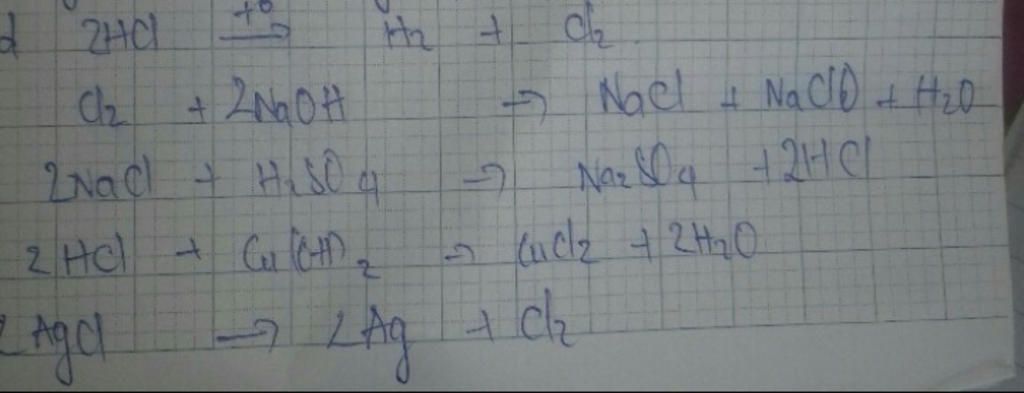 d 2HCl +° → H₂ + Cl₂
Cl₂ + 2NaOH → NaCl + NaClO + H₂O
2NaCl + H₂SO₄ → Na₂SO₄ + 2HCl
2HCl + Cu(OH)₂ → CuCl₂ + 2H₂O
2AgCl → 2Ag + Cl₂